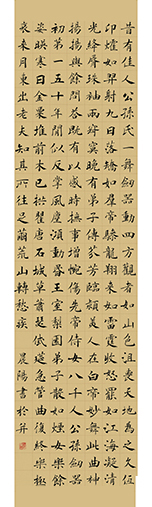 昔有佳人公孫氏一舞劍器動四方觀者如山色沮喪天地為之久低
昂㸌如羿射九日落矯如羣帝驂龍翔來如雷霆收震怒罷如江海凝清
光絳脣珠袖兩寂寞晚有弟子傳芬芳臨潁美人在白帝妙舞此曲神
揚揚與余問答既有以感時撫事增惋傷先帝侍女八千人公孫劍器
初第一五十年間似反掌風塵澒洞昏王室梨園弟子散如煙女樂餘
姿映寒日金粟堆前木已拱瞿唐石城草蕭瑟玳筵急管曲復終樂極
哀來月東出老夫不知其所往足繭荒山轉愁疾 晨陽書於并